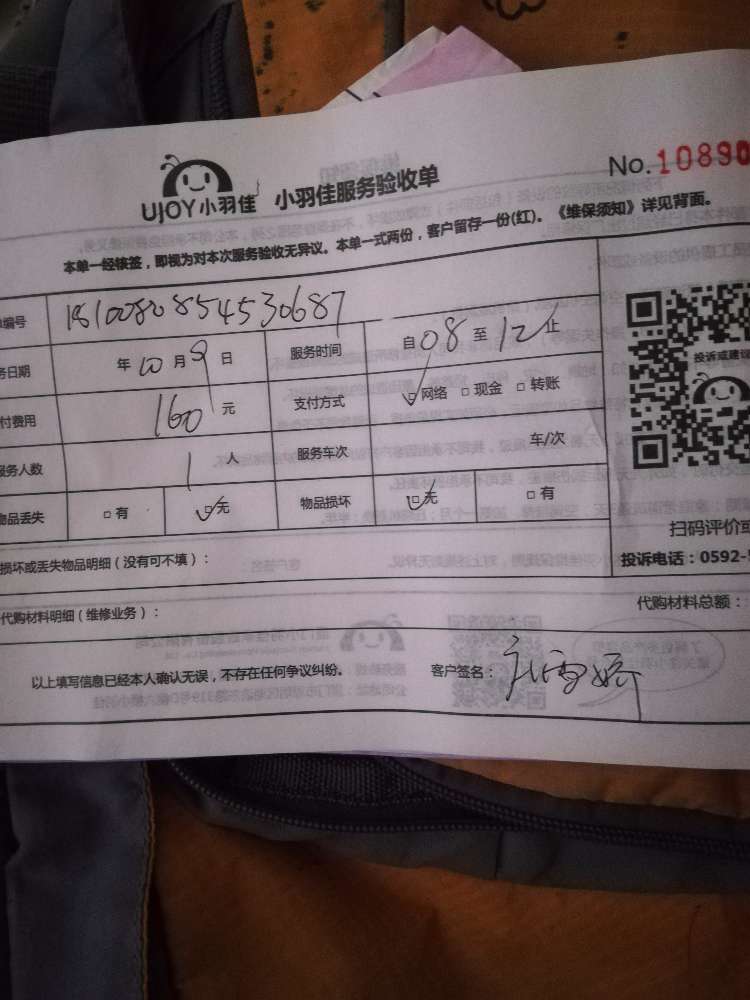 UJOY小羽佳 小羽佳服务验收单 No.10890
本单一经核签，即视为对本次服务验收无异议。本单一式两份，客户留存一份(红)。《维保须知》详见背面。
编号 181008085453 0687
日期 年10月9日 服务时间 自08至12止
付费用 160元 支付方式 ☑网络 □现金 □转账
服务人数 1人 服务车次 车/次
物品丢失 □有 ☑无 物品损坏 ☑无 □有
投诉或建议
扫码评价或
投诉电话：0592-
损坏或丢失物品明细（没有可不填）：
代购材料明细（维修业务）： 代购材料总额：
以上填写信息已经本人确认无误，不存在任何争议纠纷。 客户签名：